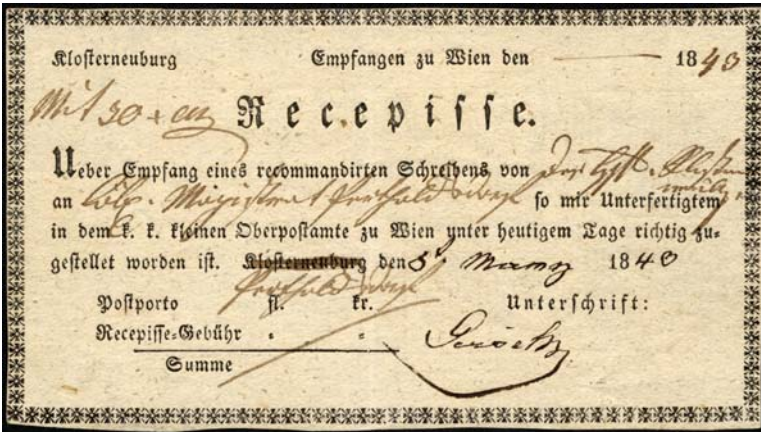 Klosterneuburg Empfangen zu Wien den 1843
Mit 30 x
Recepisse.
Ueber Empfang eines recommandirten Schreibens von
an Löbl. Magistrat Perchtoldsdorf so mir Unterfertigtem
in dem k. k. kleinen Oberpostamte zu Wien unter heutigem Tage richtig zu-
gestellet worden ist. Klosterneuburg den 5t 1843
Perchtoldsdorf
Postporto fl. kr. Unterschrift:
Recepisse-Gebühr " "
Summe